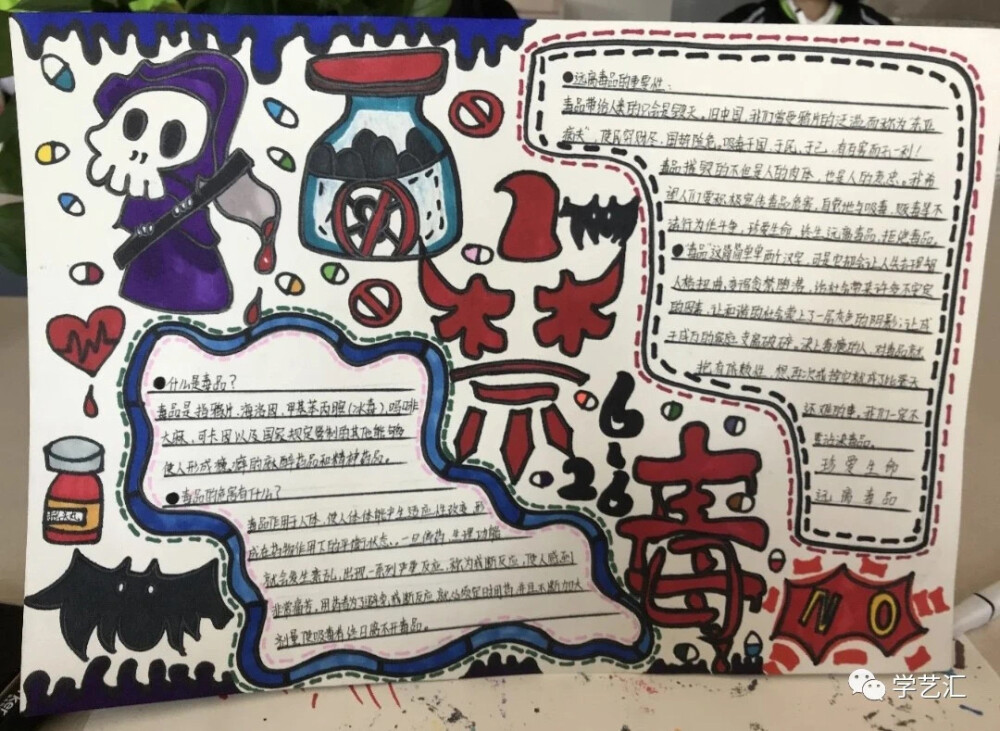 ●远离毒品的重要性：
毒品带给人类的只会是毁灭。旧中国，我们常受鸦片的泛滥而称为"东亚
病夫"，使民穷财尽，国弱险危，吸毒于国，于民，于己，有百害而无一利！
毒品摧毁的不也是人的肉体，也是人的意志。我希
望人们要积极宣传毒品危害，自觉地与吸毒、贩毒等不
法行为作斗争，珍爱生命，终生远离毒品，拒绝毒品。
●"毒品"这最简单单两个汉字，可是它却会让人失去理智
人格扭曲，变得贪婪
的因素，让和谐的社会蒙上了一层灰色的阴影；让成
千成万的家庭支离破碎。染上毒瘾的人，对毒品就
还艰难，我们一定不
要沾染毒品。
珍爱生命
远离毒品
●什么是毒品？
毒品是指鸦片，海洛因，甲基苯丙胺(冰毒)，吗啡
大麻，可卡因以及国家规定管制的其他能够
使人形成瘾癖的麻醉药品和精神药品。
●毒品的危害有什么？
毒品作用于人体，使人体体能产生适应性改变，形
成在药物作用下的平衡状态。一旦停药，生理功能
就会发生紊乱，出现一系列严重反应，称为戒断反应，使人感到
非常痛苦，用药者为了避免戒断反应，就必须定时用药，并且不断加大
剂量，使吸毒者终日离不开毒品。
禁
6-26
毒
NO
学艺汇